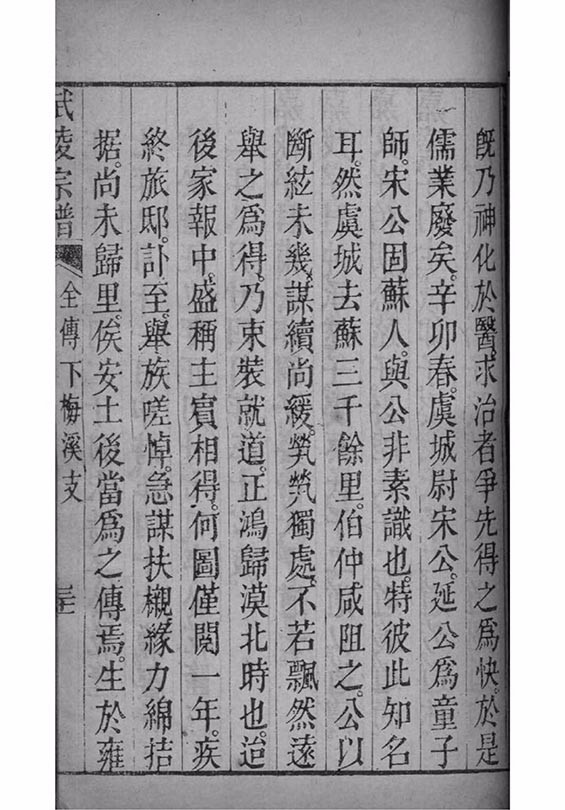 既乃神化於醫。求治者爭先得之爲快。於是
儒業廢矣。辛卯春。虞城尉宋公。延公爲童子
師。宋公固蘇人。與公非素識也。特彼此知名
耳。然虞城去蘇三千餘里。伯仲咸阻之。公以
斷絃未幾。謀續尚緩。煢煢獨處。不若飄然遠
舉之爲得。乃束裝就道。正鴻歸漠北時也。迨
後家報中。盛稱主賓相得。何圖僅閱一年。疾
終旅邸。訃至。舉族嗟悼。急謀扶櫬。緣力綿拮
据。尚未歸里。俟安土後當爲之傳焉。生於雍
武陵宗譜 全傳 下梅溪支 三十一